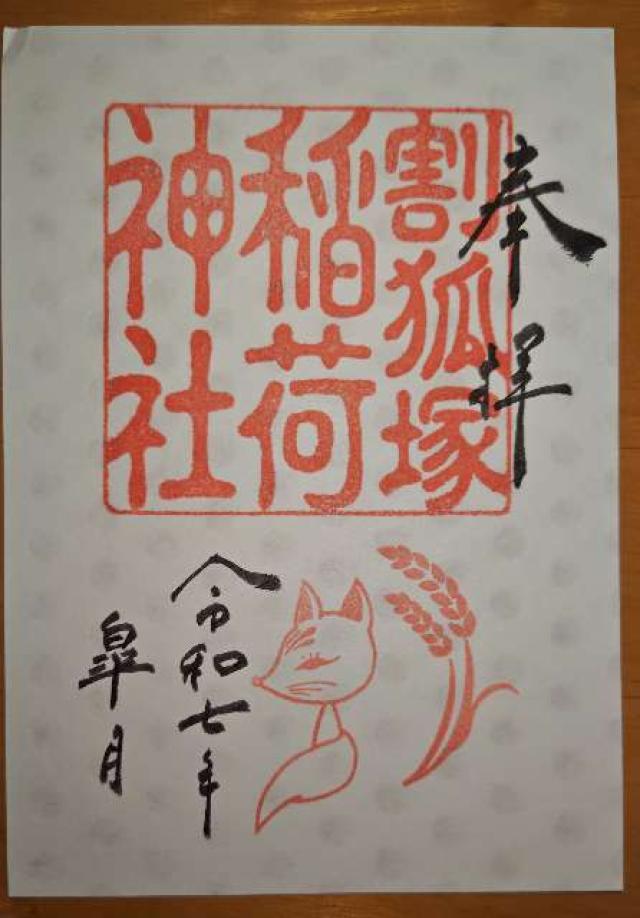 奉拝
割狐塚
稲荷
神社
令和七年
皐月